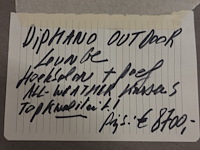 DIPHANO OUTDOOR
LOUNGE
Hocksalon + Poef
ALL-WEATHER kussens
Topkwaliteit!
Prijs: € 8700,-